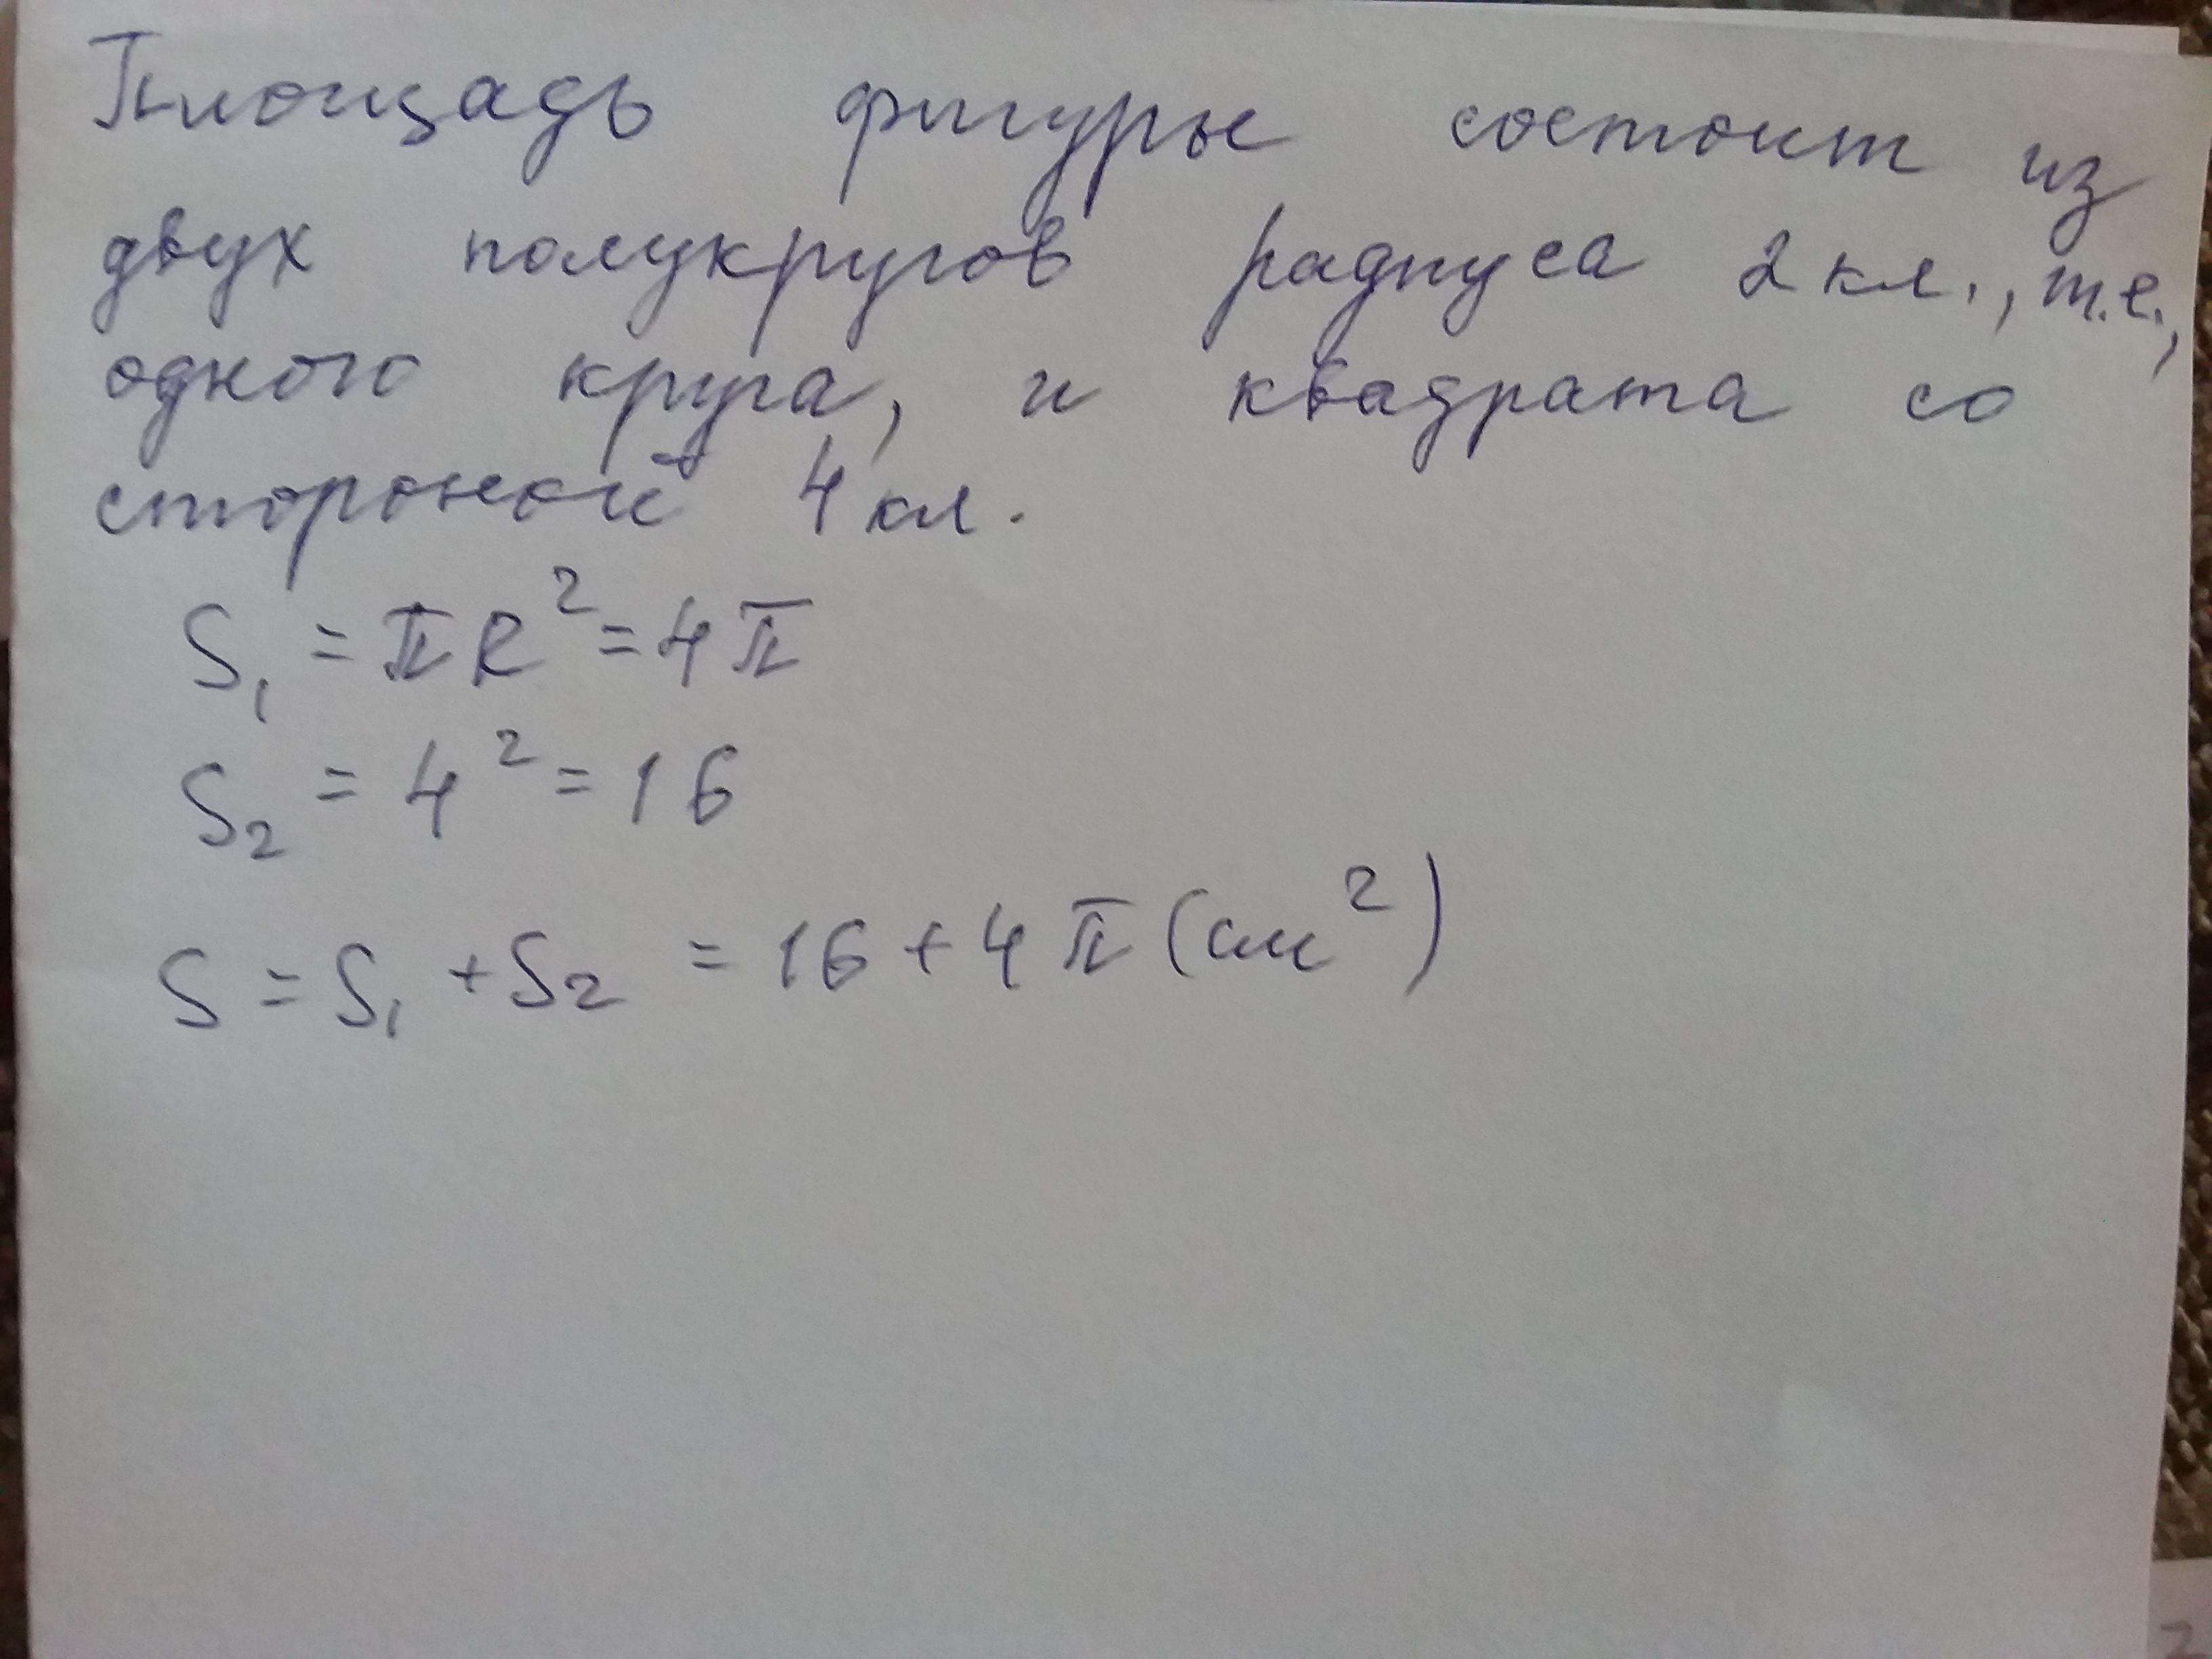 Площадь фигуры состоит из
двух полукругов радиуса 2 кл., т.е.,
одного круга, и квадрата со
стороной 4 кл.
S₁ = πR² = 4π
S₂ = 4² = 16
S = S₁ + S₂ = 16 + 4π (см²)